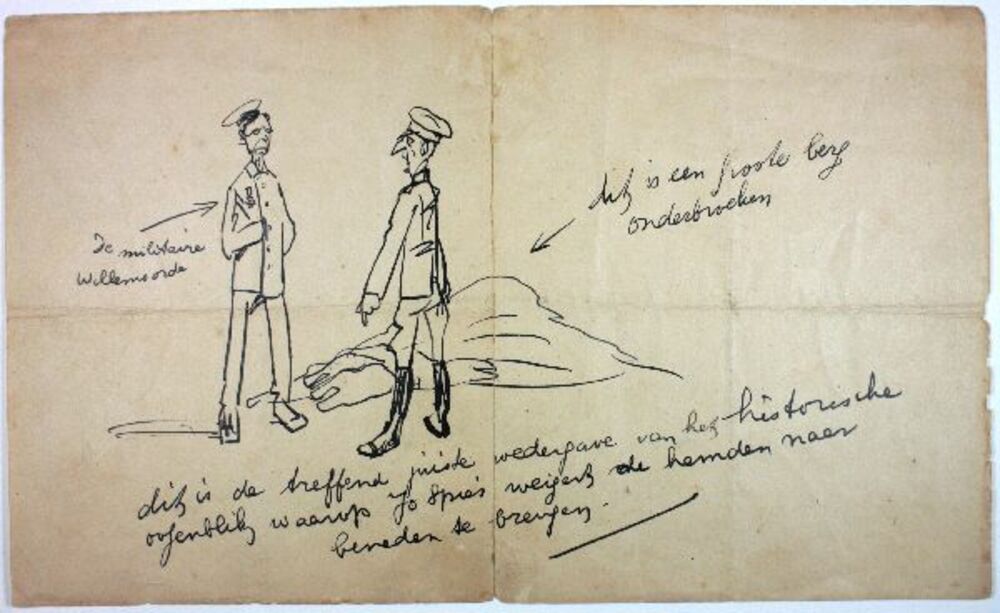 De militaire
Willemsorde
dit is een grote berg
onderbroeken
dit is de treffend juiste wedergave van het historische
oogenblik waarop Jo Spies weigert de hemden naar
beneden te brengen.